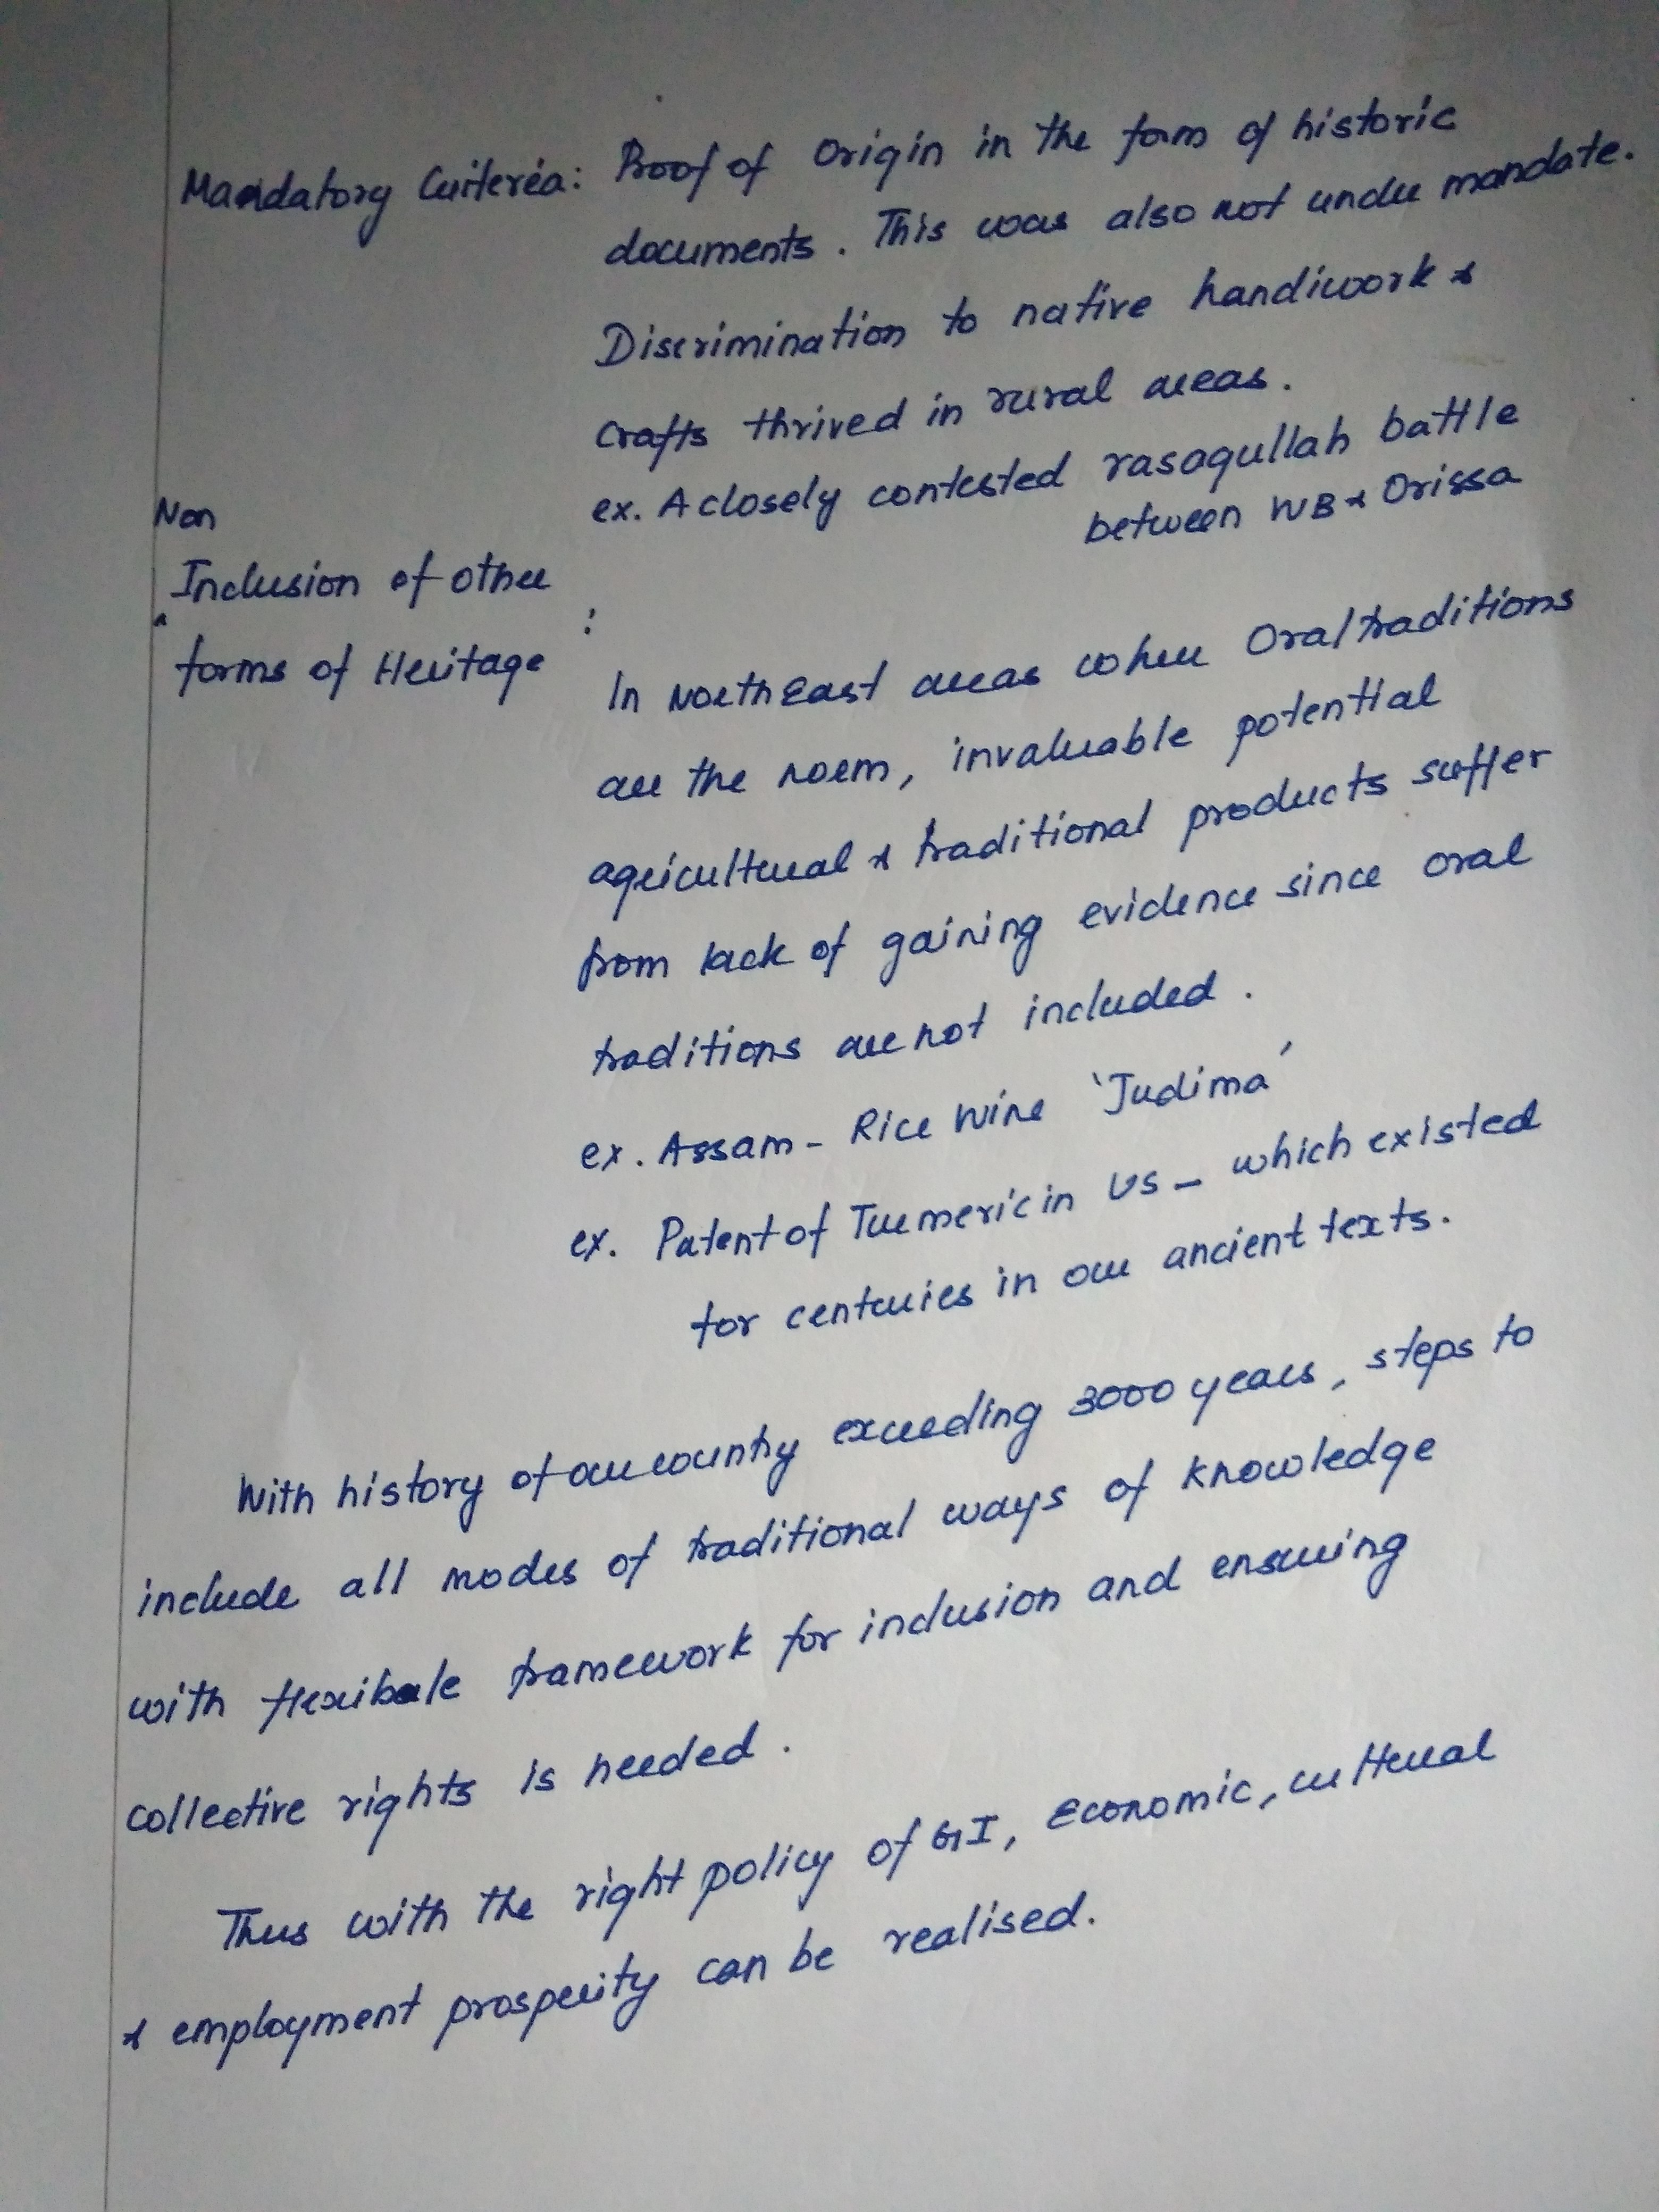 Mandatory Criteria: Proof of Origin in the form of historic
documents. This was also not under mandate.
Discrimination to native handiwork &
crafts thrived in rural areas.
ex. A closely contested rasagullah battle
between WB & Orissa
Non
Inclusion of other
forms of Heritage :
In NorthEast areas where Oral traditions
are the norm, invaluable potential
agricultural & traditional products suffer
from lack of gaining evidence since oral
traditions are not included.
ex. Assam - Rice Wine 'Judima'
ex. Patent of Turmeric in US - which existed
for centuries in our ancient texts.
With history of our country exceeding 3000 years, steps to
include all modes of traditional ways of knowledge
with flexibale framework for inclusion and ensuring
collective rights is needed.
Thus with the right policy of GI, Economic, cultural
& employment prosperity can be realised.